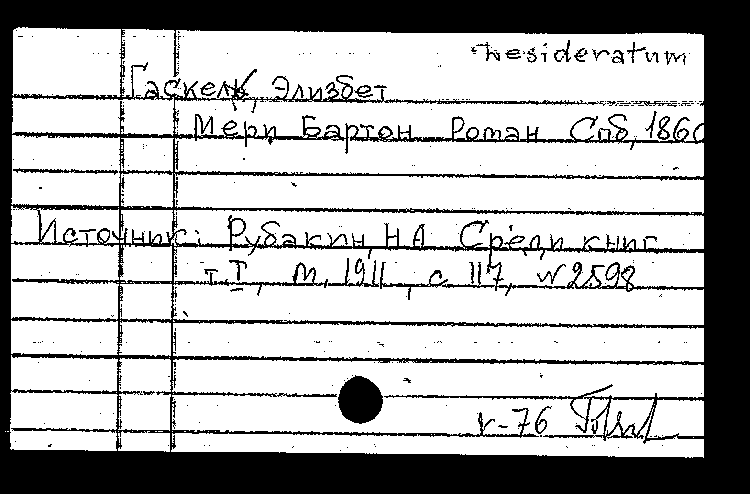 Desideratum
Гаскел, Элизбет
Мери Бартон Роман Спб, 1860
Источник: Рубакин, Н А Среди книг
т. I, М, 1911, с 117, N 2598
v-76